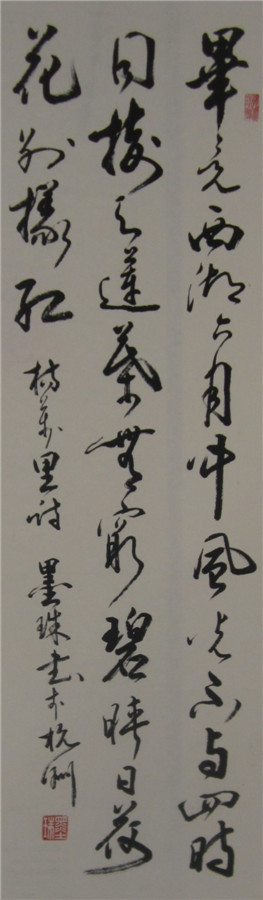 畢竟西湖六月中風光不与四時
同接天蓮葉無窮碧映日荷
花别樣紅
楊萬里詩 墨珠书於杭州